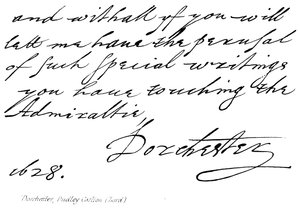 and withall yf you will
lett me have the perusal
of such special writings
you have touching the
Admiraltie,
Dorchester
1628.
Dorchester, Dudley Carleton (Lord)